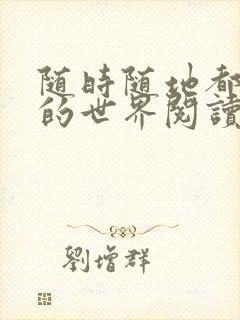 随時随地都
的世界閱讀
劉增群